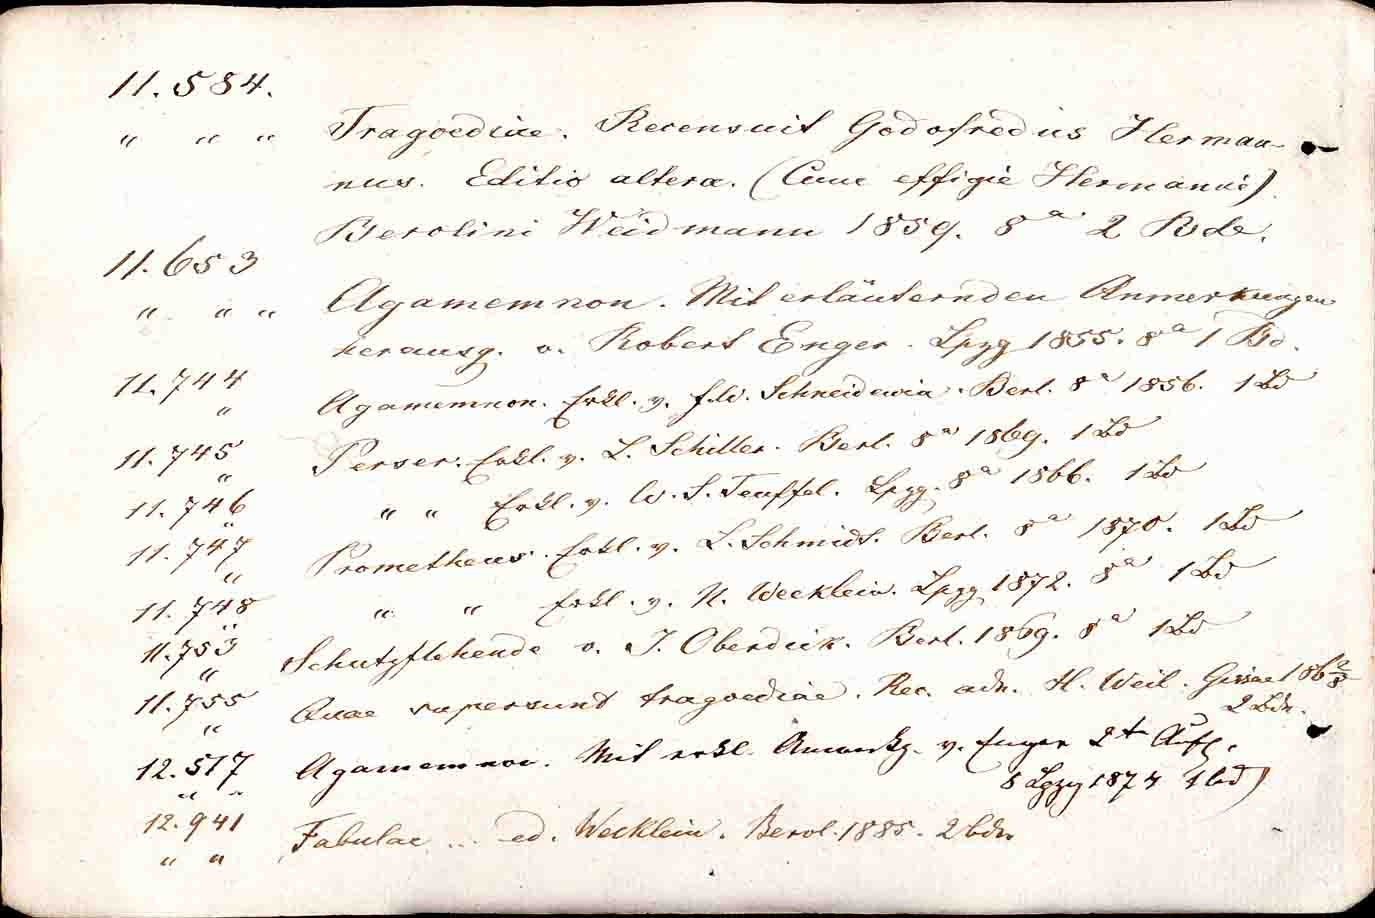 11.584.
" " " Tragoediae. Recensuit Godofredus Herman-
nus. Editio altera. (Cum effigie Hermanni)
Berolini Weidmann 1859. 8° 2 Bde.
11.653
" " " Agamemnon. Mit erläuternden Anmerkungen
herausg. v. Robert Enger. Lpzg 1855. 8° 1 Bd.
11.744
" Agamemnon. Erkl. v. F. W. Schneidewin. Berl. 8° 1856. 1 Bd
11.745
" Perser. Erkl. v. L. Schiller. Berl. 8° 1869. 1 Bd
11.746
" " " Erkl. v. W. S. Teuffel. Lpzg. 8° 1866. 1 Bd
11.747
" Prometheus. Erkl. v. L. Schmidt. Berl. 8° 1870. 1 Bd
11.748
" " " Erkl. v. N. Wecklein. Lpzg 1872. 8° 1 Bd
11.753
" Schutzflehende v. J. Oberdick. Berl. 1869. 8° 1 Bd
11.755
" Quae supersunt tragoediae. Rec. adn. H. Weil. Gissae
2 Bde.
12.517
" " Agamemnon. Mit erkl. Anmerkg. v. Enger 2t Aufl.
8 Lpzg 1874 1 bd)
12.941
" " Fabulae ... ed. Wecklein. Berol. 1885. 2 bde